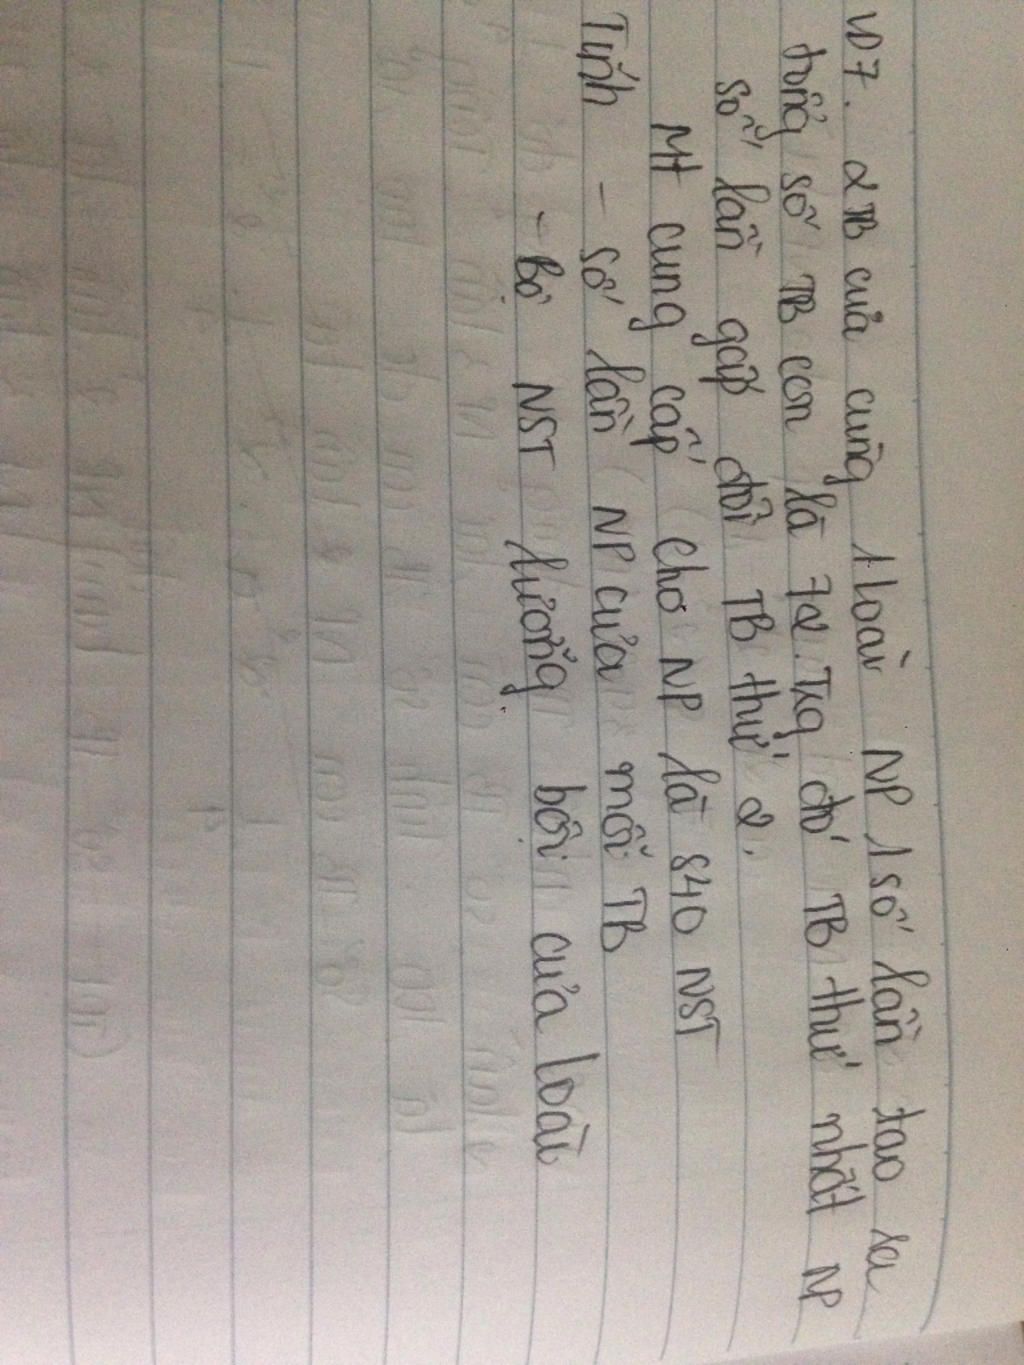 VD7. 2TB của cùng 1 loài NP 1 số lần tạo ra
tổng số TB con là 72. Trg đó TB thứ nhất NP
số lần gấp đôi TB thứ 2.
Mt cung cấp cho NP là 840 NST
Tính - số lần NP của mỗi TB
- Bộ NST lưỡng bội của loài